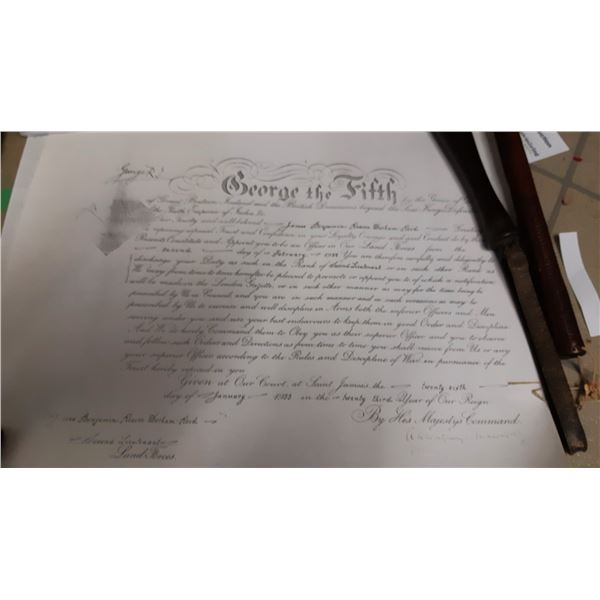 George R.I.
George the Fifth by the Grace of G
of Great Britain, Ireland and the British Dominions beyond the Seas King, Defen
the Faith, Emperor of India &c.
To Our Trusty and well beloved James Benjamin Greeting
reposing especial Trust and Confidence in your Loyalty, Courage, and good Conduct, do by th
Presents Constitute and Appoint you to be an Officer in Our Land Forces from the
day of February 1933 You are therefore carefully and diligently to
discharge your Duty as such in the Rank of Second Lieutenant or in such other Rank as
We may from time to time hereafter be pleased to promote or appoint you to of which a notification
will be made in the London Gazette, or in such other manner as may for the time being be
prescribed by Us in Council and you are in such manner and on such occasions as may be
prescribed by Us to exercise and well discipline in Arms both the inferior Officers and Men
serving under you and use your best endeavours to keep them in good Order and Discipline
And We do hereby Command them to Obey you as their superior Officer and you to observe
and follow such Orders and Directions as from time to time you shall receive from Us or any
your superior Officer according to the Rules and Discipline of War in pursuance of the
Trust hereby reposed in you
Given at Our Court, at Saint James's the twenty sixth
day of January 1933 in the twenty third Year of Our Reign
By His Majesty's Command
Benjamin
Second Lieutenant
Land Forces